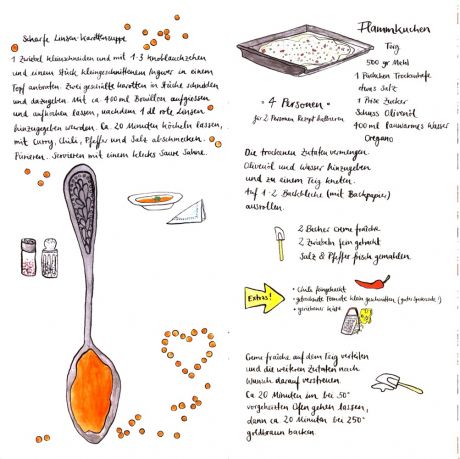 Scharfe Linsen-Karottensuppe
1 Zwiebel kleinschneiden und mit 1-3 Knoblauchzehen
und einem Stück kleingeschnittenem Ingwer in einem
Topf anbraten. Zwei geschälte Karotten in Stücke schneiden
und dazugeben. Mit ca. 400 ml Bouillon aufgiessen
und aufkochen lassen, nachdem 1 dl rote Linsen
hinzugegeben werden. Ca. 20 Minuten köcheln lassen,
mit Curry, Chili, Pfeffer und Salz abschmecken.
Pürieren. Servieren mit einem Klecks Saure Sahne.
Flammkuchen
Teig
500 gr Mehl
1 Päckchen Trockenhefe
etwas Salz
1 Prise Zucker
Schuss Olivenöl
400 ml lauwarmes Wasser
Oregano
- 4 Personen -
für 2 Personen Rezept halbieren
Die trockenen Zutaten vermengen.
Olivenöl und Wasser hinzugeben
und zu einem Teig kneten.
Auf 1-2 Backbleche (mit Backpapier)
ausrollen.
2 Becher Creme fraîche
2 Zwiebeln fein gehackt
Salz & Pfeffer frisch gemahlen
Extras!
• Chili feingehackt
• getrocknete Tomate klein geschnitten
• geriebener Käse
Creme fraîche auf dem Teig verteilen
und die weiteren Zutaten nach
Wunsch darauf verstreuen.
Ca 20 Minuten im bei 50°
vorgeheizten Ofen gehen lassen,
dann ca 20 Minuten bei 250°
goldbraun backen.